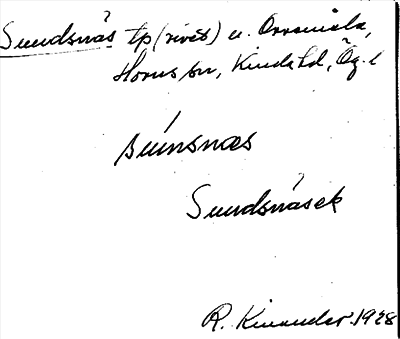 Sundsnäs tp (rivet) u. Orrenäs,
Horns sn, Kinda hd, Ög. l
súnsnæs
Sundsnäsek
R. Kinander. 1928